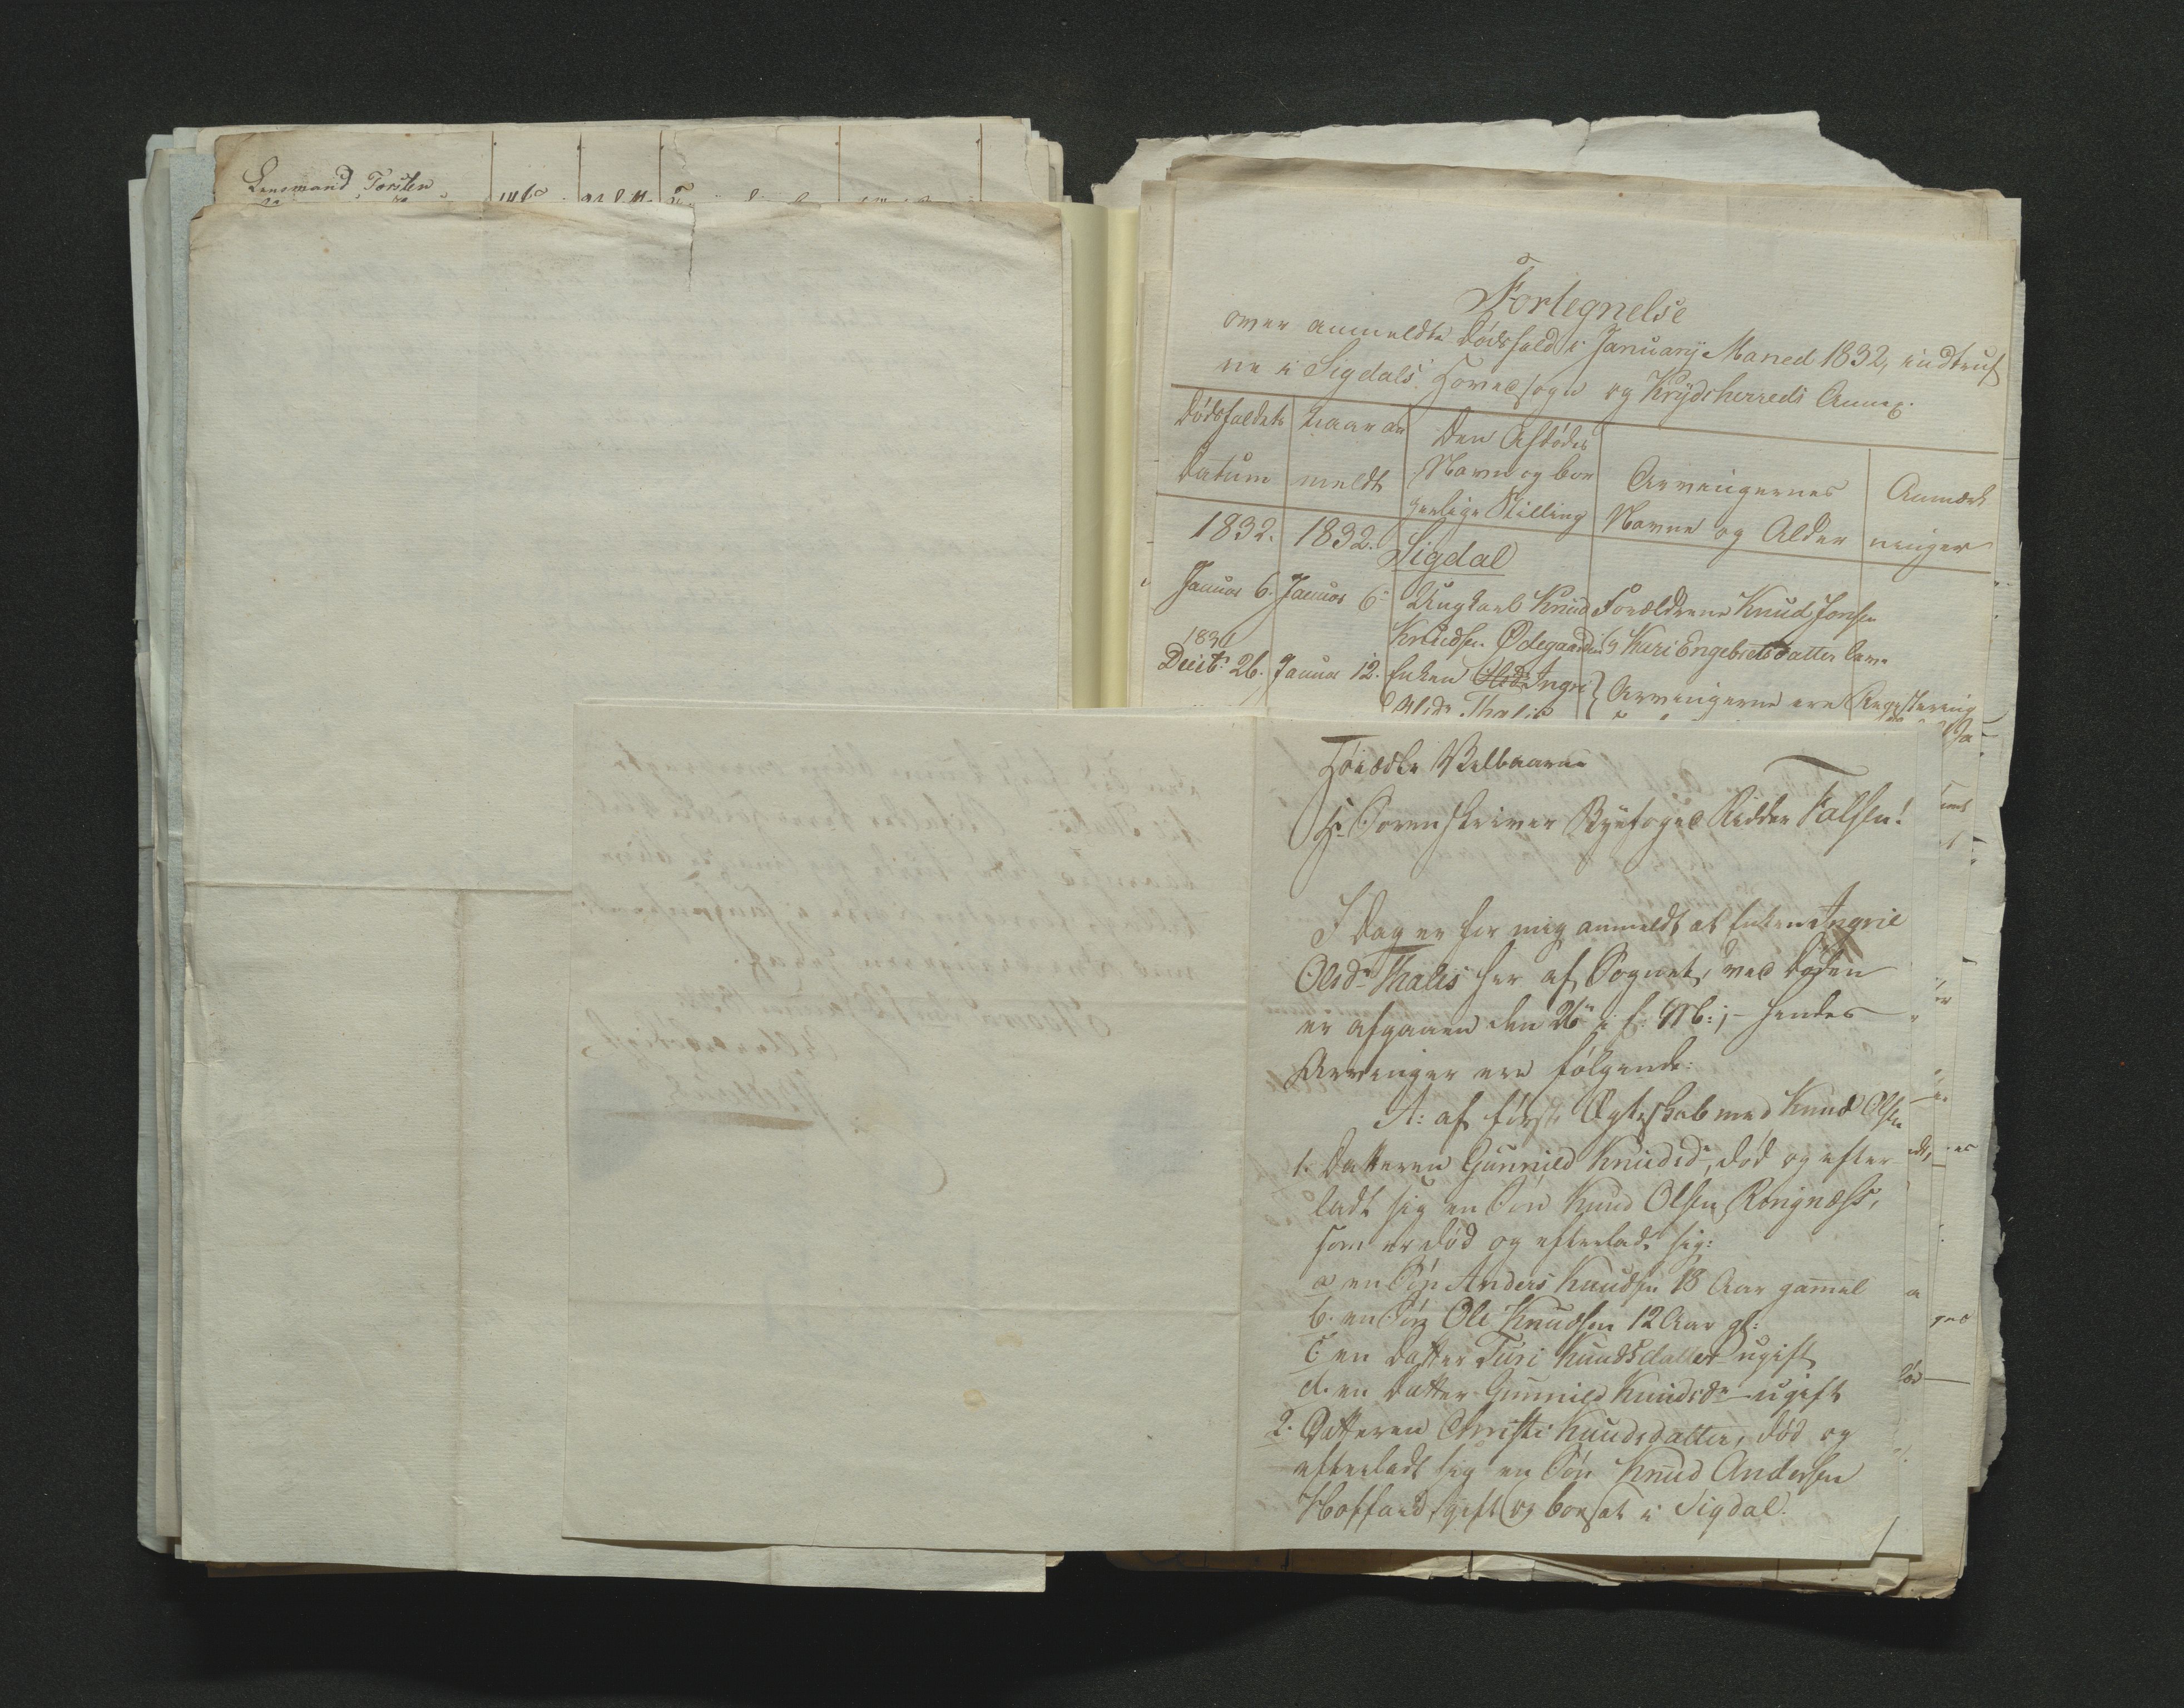 Lensmand Torsten
Fortegnelse
over anmeldte Dødsfald i Januarii Maaned 1832, indtruf
ne i Sigdals Hovedsogn og Krydsherreds Annex.
Dødsfaldets Datum
Naar an meldt
Den Afdødes Navn og bor gerlige Stilling
Arvingernes Navne og Alder
Anmærk ninger
1832. 1832. Sigdal
Januar 6. Januar 6 Ungkarl Knud Forældrene Knud Jonsen
Knudsen Ødegaarden og Kari Engebretsdatter leve
1831
Decbr 26. Januar 12. Enken Ingri Arvingerne ere Registrering
Olsdr Thalis
Høiædle Velbaarne
Hr Sorenskriver Byefoged Ridder Falsen!
I Dag er for mig anmeldt at Enken Ingrie
Olsdr Thalis her af Sognet, ved Døden
er afgaaen den 26 i f: M:; – hendes
Arvinger ere følgende:
A: af første Ægteskab med Knud Olsen
1. Datteren Gunnild Knudsdr, død og efter
ladt sig en Søn Knud Olsen Ringnæss,
som er død og efterladt sig:
a en Søn Anders Knudsen 18 Aar gamel
b. en Søn Ole Knudsen 12 Aar gl:
c. en Datter Turi Knudsdatter ugift
d. en Datter Gunnild Knudsdr ugift
2. Datteren Christi Knudsdatter, død og
efterladt sig en Søn Knud Andersen
Hoffard, gift og boesat i Sigdal.